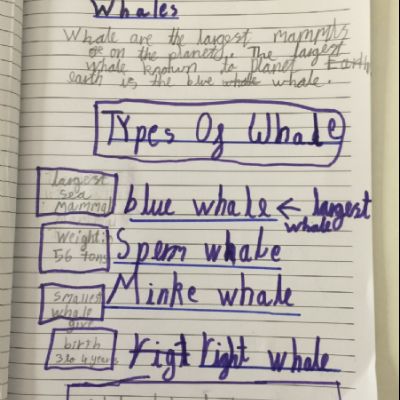 Whales
Whale are the largest mammls
on the planets. The largest
whale known to Planet Earth
earth is the blue whale whale.
Types Of Whale
largest
sea
mamma
blue whale ← largest
whale
Weight:
56 tons
Spem whale
Smallest
whale
Minke whale
give
birth
3 to 4 years
rigt right whale